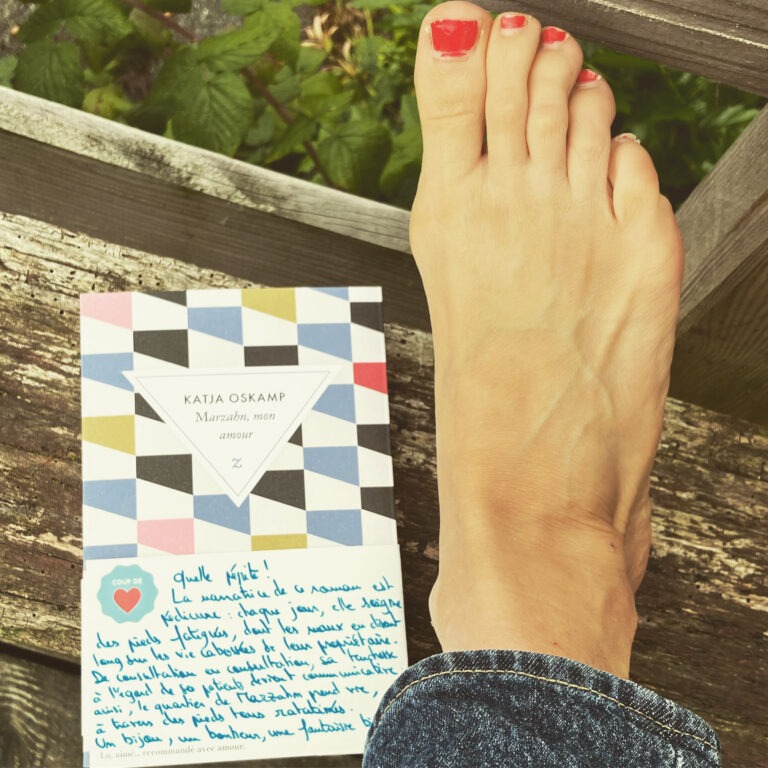 KATJA OSKAMP
Marzahn, mon
amour
Z
COUP DE
Quelle pépite !
La narratrice de ce roman est
pédicure : chaque jour, elle soigne
des pieds fatigués, dont les maux en disent
long sur les vies cabossées de leur propriétaire.
De consultation en consultation, sa tendresse
à l'égard de ses patients devient communicative
ainsi, le quartier de Marzahn prend vie,
à travers des pieds tous ratatinés.
Un bijou, un bonheur, une fantaisie
Lu, aimé... recommandé avec amour.